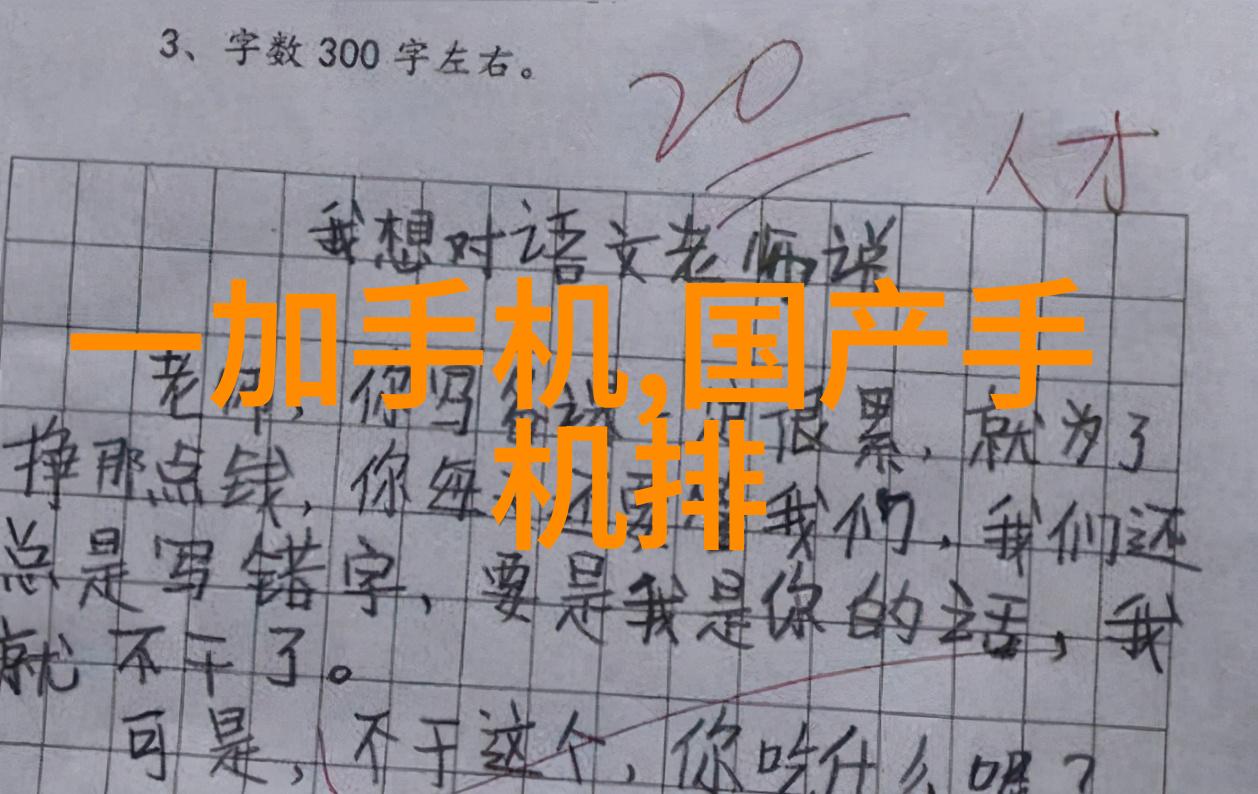 3、字数 300 字左右。
20
人才
我想对语文老师说
一加手机,国产手
机排
老师,你写 很累,就为了
挣那点钱,你每 我们,我们还
总是写错字,要是我是你的话,我
就不干了。
可是,不干这个,你吃什么呢?